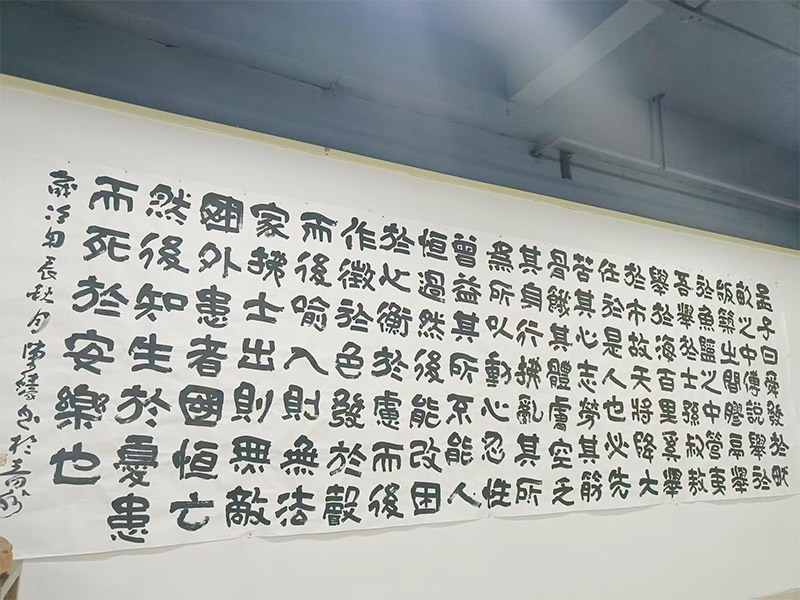 孟子曰舜發於畎
畝之中傅說舉於
版築之間膠鬲舉
於魚鹽之中管夷
吾舉於士孫叔敖
舉於海百里奚舉
於市故天將降大
任於是人也必先
苦其心志勞其筋
骨餓其體膚空乏
其身行拂亂其所
為所以動心忍性
曾益其所不能人
恒過然後能改困
於心衡於慮而後
作徵於色發於聲
而後喻入則無法
家拂士出則無敵
國外患者國恒亡
然後知生於憂患
而死於安樂也
歲次甲辰秋月書於